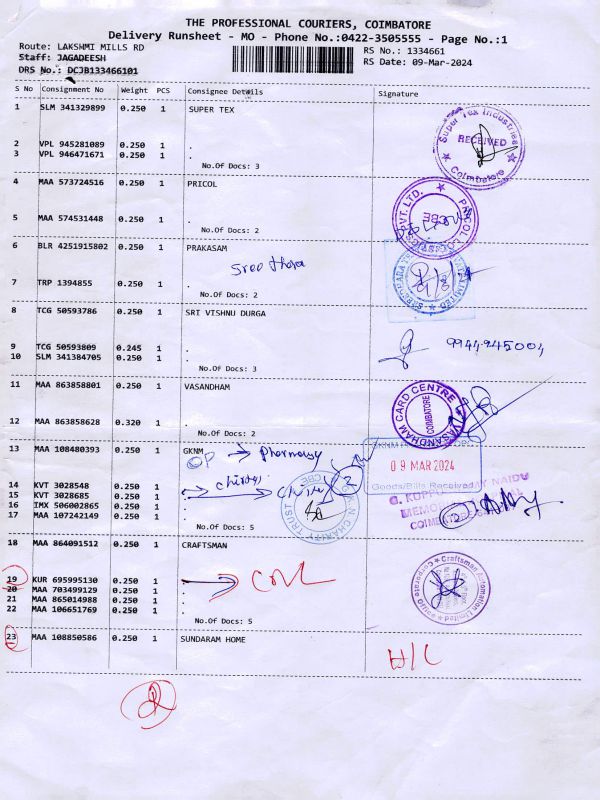 THE PROFESSIONAL COURIERS, COIMBATORE
Delivery Runsheet - MO - Phone No.:0422-3505555 - Page No.:1
Route: LAKSHMI MILLS RD RS No.: 1334661
Staff: JAGADEESH RS Date: 09-Mar-2024
DRS No.: DCJB133466101
S No Consignment No Weight PCS Consignee Details Signature
1 SLM 341329899 0.250 1 SUPER TEX
Super Tex Industries
RECEIVED
Coimbatore
2 VPL 945281089 0.250 1 .
3 VPL 946471671 0.250 1 .
No.Of Docs: 3
4 MAA 573724516 0.250 1 PRICOL
5 MAA 574531448 0.250 1 .
No.Of Docs: 2
6 BLR 4251915802 0.250 1 PRAKASAM
7 TRP 1394855 0.250 1 .
No.Of Docs: 2
8 TCG 50593786 0.250 1 SRI VISHNU DURGA
9 TCG 50593809 0.245 1 .
9944945004
10 SLM 341384705 0.250 1 .
No.Of Docs: 3
11 MAA 863858801 0.250 1 VASANDHAM
VASANDHAM CARD CENTRE
COIMBATORE
12 MAA 863858628 0.320 1 .
No.Of Docs: 2
13 MAA 108480393 0.250 1 GKNM
OP pharmacy
09 MAR 2024
14 KVT 3028548 0.250 1 .
Goods/Bills Received
15 KVT 3028685 0.250 1 .
2
16 IMX 506002865 0.250 1 .
17 MAA 107242149 0.250 1 .
No.Of Docs: 5
18 MAA 864091512 0.250 1 CRAFTSMAN
Craftsman Automation Limited
Corporate Office
19 KUR 695995130 0.250 1 .
20 MAA 703499129 0.250 1 .
21 MAA 865014988 0.250 1 .
22 MAA 106651769 0.250 1 .
No.Of Docs: 5
23 MAA 108850586 0.250 1 SUNDARAM HOME
H/C